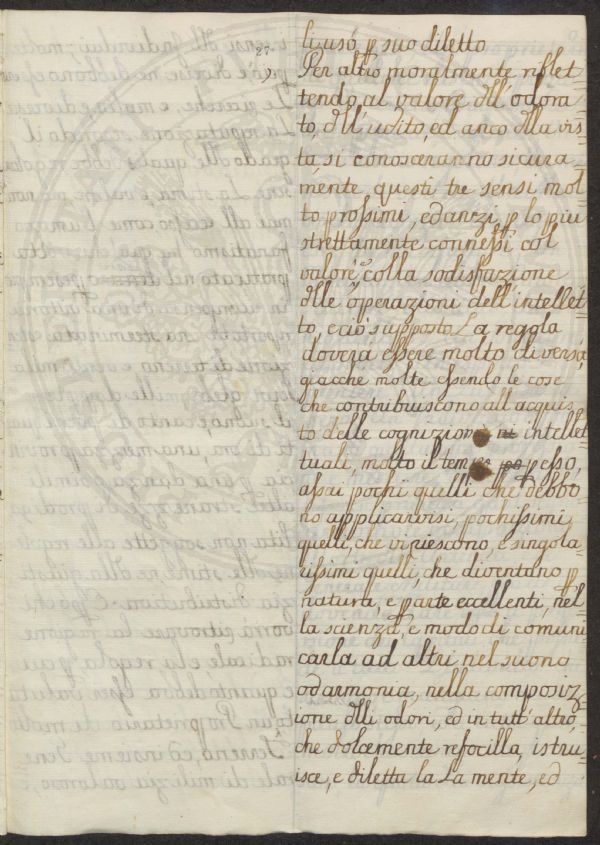 27
li, usó p suo diletto
Per altro moralmente riflet=
tendo al valore dll' odora=
to, dll' udito, ed anco dlla vis=
ta, si conosceranno sicura=
mente, questi tre sensi mol=
to prossimi, ed anzi, p lo piu
strettamente connessi col
valore e colla sodisfazione
dlle operazioni dell' intellet=
to, e ciò supposto La regola
doverà essere molto diversa,
giacche molte essendo le cose
che contribuiscono all acquis=
to delle cognizioni intellet=
tuali, molto il tempo p esso,
assai pochi quelli che debbo
no applicarvisi, pochissimi
quelli, che vi riescono, e singola=
rissimi quelli, che diventano p
natura, e p arte eccellenti, nel=
la scienza, e modo di comuni
carla ad altri nel suono
od armonia, nella composiz=
ione dlli odori, ed in tutt' altro,
che dolcemente refocilla, istru=
isce, e diletta la La mente, ed